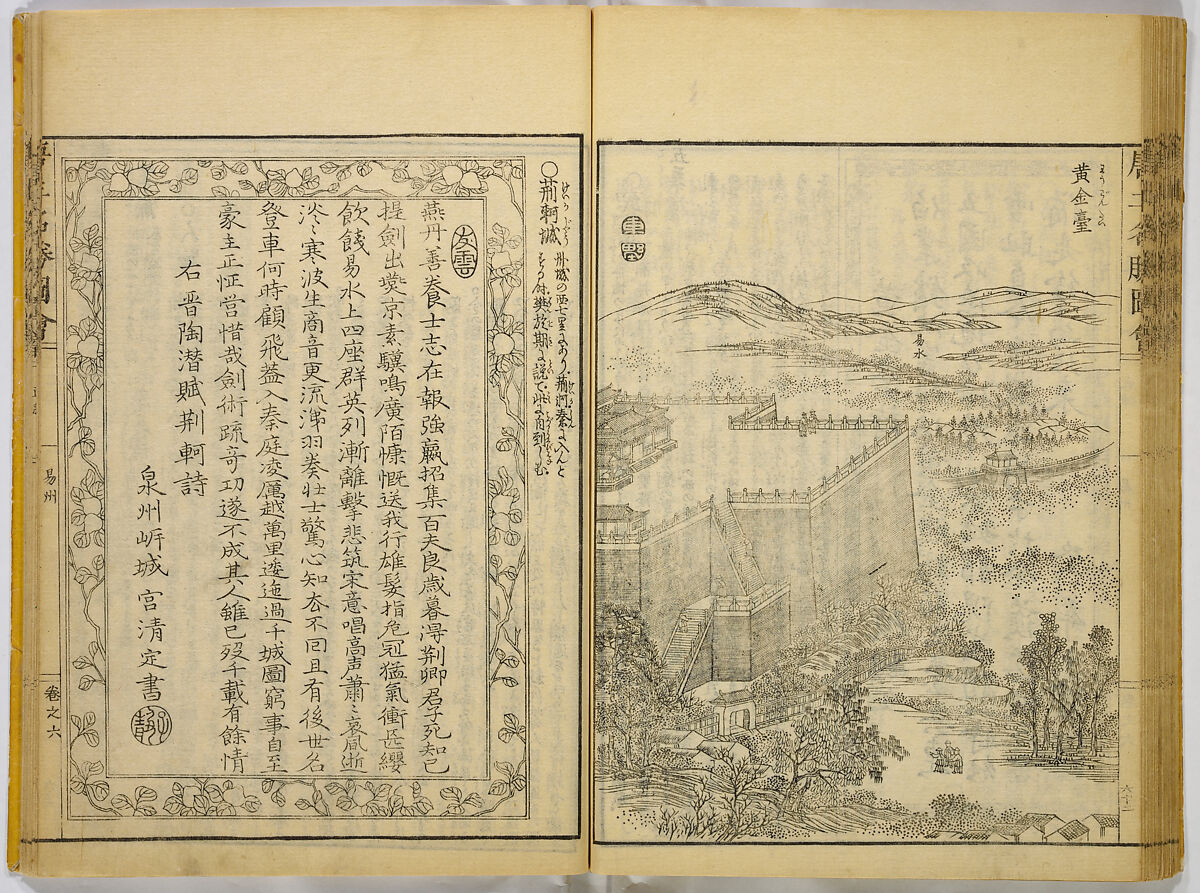 唐土名勝圖會
黄金臺
わうごんだい
易水
六十二
○荊軻城
けいかじやう
州城の西七里にあり荊軻秦に入んと
する時樊於期に説て此に自剄しむ
友雲
燕丹善養士志在報強嬴招集百夫良歳暮得荊卿君子死知己
提劍出燕京素驥鳴廣陌慷慨送我行雄髮指危冠猛氣衝長纓
飲餞易水上四座群英列漸離擊悲筑宋意唱高声蕭〻哀風逝
淡〻寒波生商音更流涕羽奏壮士驚心知去不回且有後世名
登車何時顧飛蓋入秦庭凌厲越萬里逶迤過千城圖窮事自至
豪主正怔営惜哉劍術疏奇功遂不成其人雖已歿千載有餘情
右晋陶潜賦荊軻詩
泉州岍城宮清定書
唐土名勝圖會
易州
卷之六